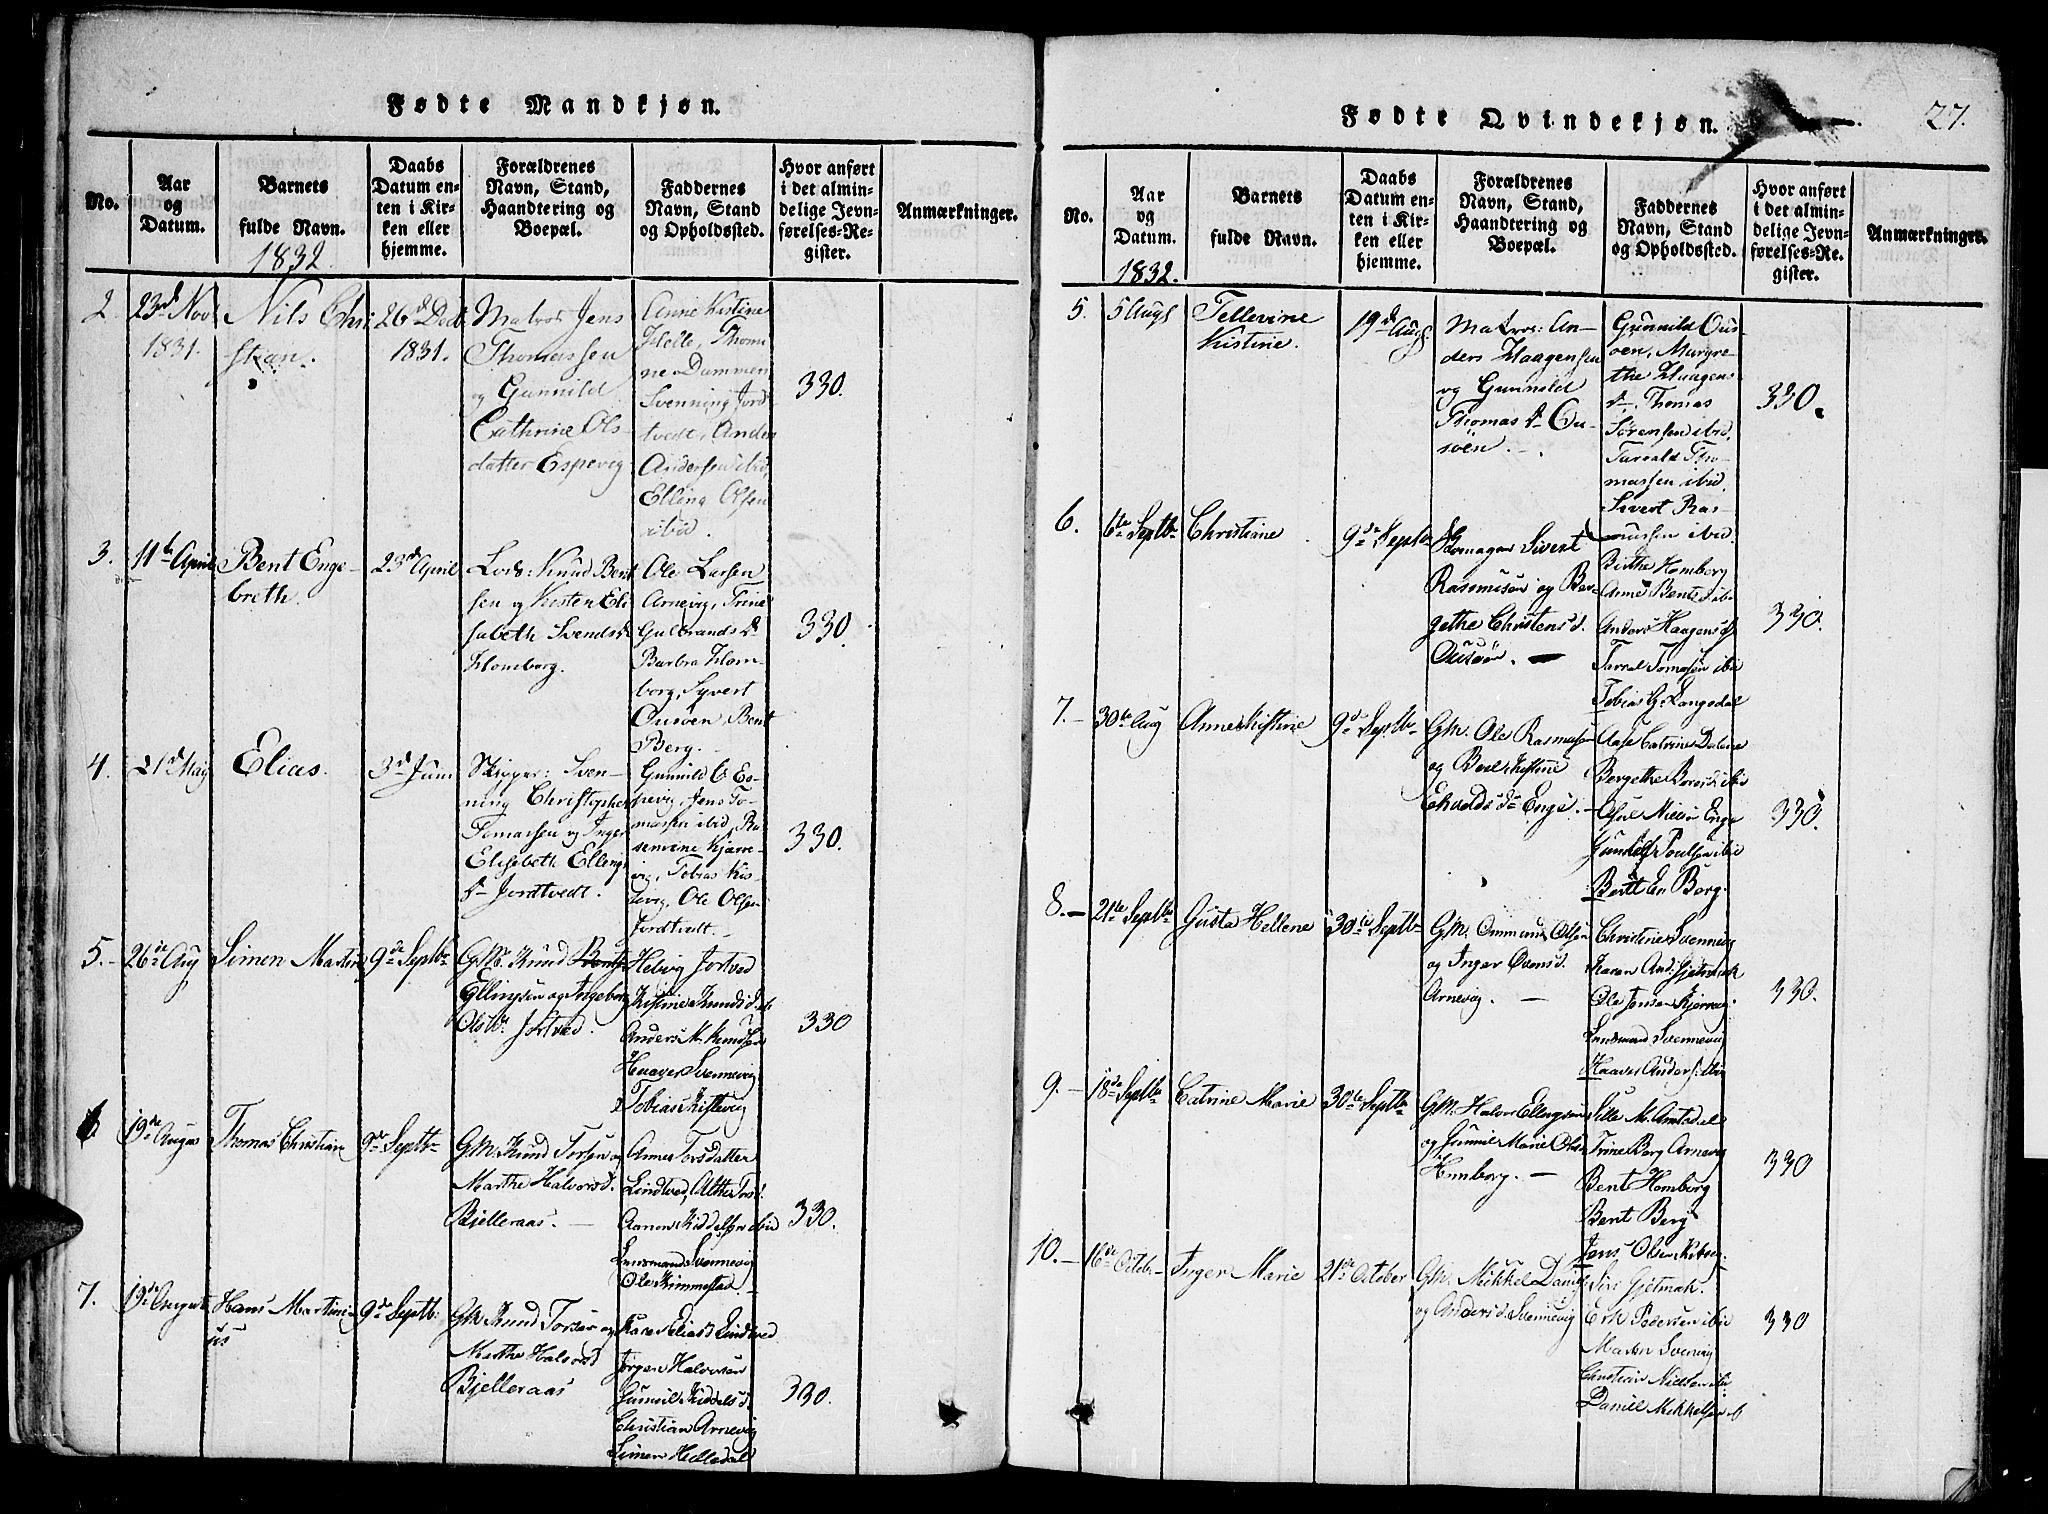 Fødte Mandkjøn.
No.
Aar
og
Datum.
Barnets
fulde Navn.
1832
Daabs
Datum en-
ten i Kir-
ken eller
hjemme.
Forældrenes
Navn, Stand,
Haandtering og
Boepæl.
Faddernes
Navn, Stand
og Opholdssted.
Hvor anført
i det almin-
delige Jevn-
førelses-Re-
gister.
Anmærkninger.
2.
23d Nov
1831.
Nils Chri
stian.
26d Decb
1831.
Matros Jens
Thomassen
og Gunnild
Cathrine Ols-
datter Espevig
Anne Kistine
Helle, Thom
ne Dammen
Svenning Jord
tvedt, Anders
Andersen ibid,
Elling Olsen
ibid.
330.
3.
11te April
Bent Enge-
breth.
23d April
Lods: Knud Bent
sen og Kisten Eli
sabeth Svendsd.
Homborg.
Ole Larsen
Arnevig, Trine
Gulbrandsd.
Barbra Hom-
borg, Syvert
Ousöen, Bent
Berg.
330.
4.
21d May
Elias.
3d Juni
Skipper: Sven-
ning Christopher
Tomassen og Inger
Elisabeth Ellings
d. Jordtvedt.
Gunnild O Es-
pevig, Jens To-
massen ibid, Ra
senvine Kjære-
vig, Tobias Kis-
tevig, Ole Olsen
Jordtvedt.
330.
5.
26de Aug
Simen Martin
9de Septbr
GM. Knud Bents
Ellingsen og Ingeborg
Olsd. Jortved.
Helvig Jortved
Kistine Knudsd.
Anders M. Knudsen
Haaver Svennevig
Tobias Kistevig
330
6.
19de August
Thomas Christian
9de Septbr
GM. Knud Torsen og
Marthe Halvorsd.
Bjelleraas.
Anne Torsdatter
Lindtved, Alther Torsd.
Aanon Kiddelsen ibid
Lensmand Svennevig
Ole Kimmestad
330.
7.
19de August
Hans Martini
us
9de Septb:
GM Knud Torsen og
Marthe Halvorsd
Bjelleraas
Karen Eliasd Lindtved
Jörgen Halvorsen
Gunnil Kiddelsd.
Christian Arnevig
Simen Heldal
330.
Fødte Qvindekjøn.
27.
No.
Aar
og
Datum.
1832.
Barnets
fulde Navn.
Daabs
Datum en-
ten i Kir-
ken eller
hjemme.
Forældrenes
Navn, Stand,
Haandtering og
Boepæl.
Faddernes
Navn, Stand
og Opholdssted.
Hvor anført
i det almin-
delige Jevn-
førelses-Re-
gister.
Anmærkninger.
5.
5 Augs
Tellevine
Kistine.
19d Augs.
Matros: An-
ders Haagensen
og Gunnild
Thomas d. Ou-
söen.
Gunnild Ous-
öen, Margre-
the Haagens
d., Thomas
Sörensen ibid,
Tarrald Tho-
massen ibid,
Sivert Ras-
mussen ibid.
330.
6.
6te Septbr
Christiane
9de Septbr
Sivert
Rasmusön og Ber-
gethe Christensd.
Ousöön.
Birthe Homborg
Anne Bentsd ibid
Anders Haagens
Tarral Tomasön ibid
Tobias G. Langsdal
330.
7.
30te Aug
Anne Kistine
9de Septbr
GM. Ole Rasmusen
og Berl Kistine
Ehvaldsd. Enge.
Aase Catrine Dalene
Bergethe Borersd ibid
Ole Nielsen Enge
Gunder Poulsen ibid
Bertl En Borg.
330.
8.
21te Septbr
Gusta Hellene
30te Septbr
GM. Ommund Olsen
og Inger Ovensd.
Arnevig.
Christine Svennevig
Karen And. Gjetmak
Ole Jensen Kjörevig
Lensmand Svennevig
Haaver Anders: ibid
330.
9.
18de Septbr
Catrine Marie
30te Septbr
GM. Halvor Ellingsen
og Gunnil Marie Olsd.
Homborg.
Sille M. Amtedal
Trine Borg Arnevig
Bent Homborg
Bent Berg
Jens Olsen
330
10.
16de Octobr
Inger Marie
21de October
GM. Mikkel Daniels
og Andersd. Svennevig
Siri Gjetmak.
Erk Pedersen ibid
Maren Svenvig
Christian Nielsen ibid
Daniel Mikkelsen
330